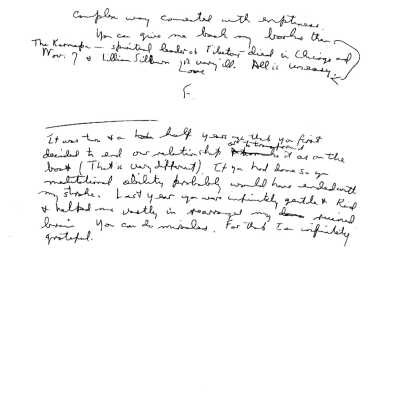 complex way connected with emptiness.
You can give me back my books then.
The Karmapa — spiritual leader of Tibetans died in Chicago on
Nov. 7 & Lillian Silburn is very ill. All is uneasy.
Love
F.
It was two & a half years ago that you first
decided to end our relationship it as on the
boat (That is very different). If you had done so your
institutional ability probably would have ended with
my stroke. Last year you were infinitely gentle & kind
& helped me vastly in rearranging my ruined
brain. You can do miracles. For that I am infinitely
grateful.